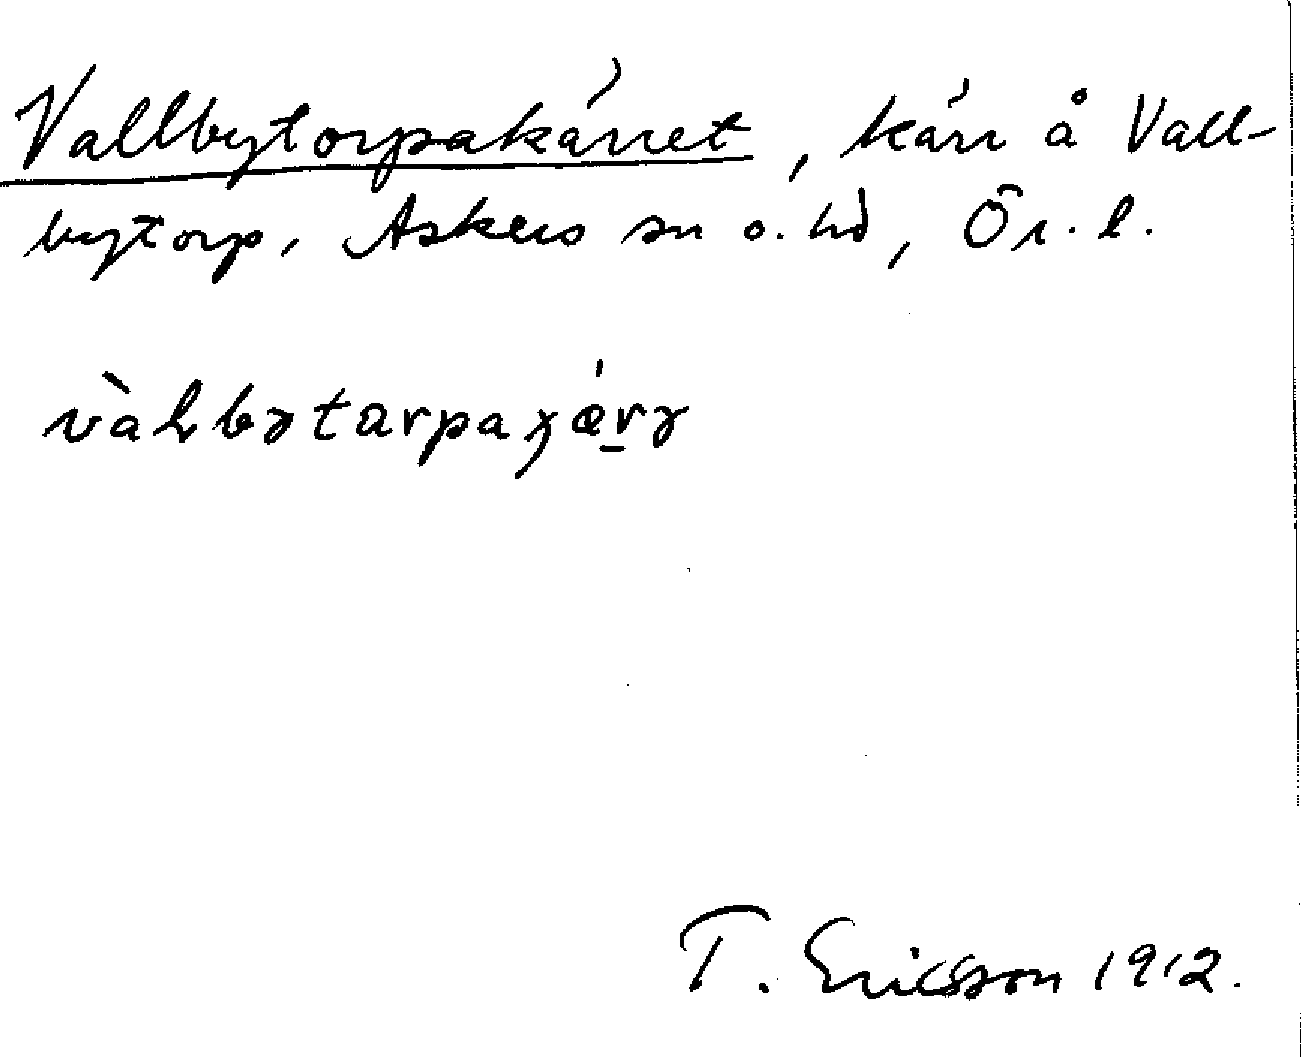 Vallbytorpakärret, kärr å Vall-
bytorp, Askers sn o. hd, Ör. l.
T. Ericsson 1912.